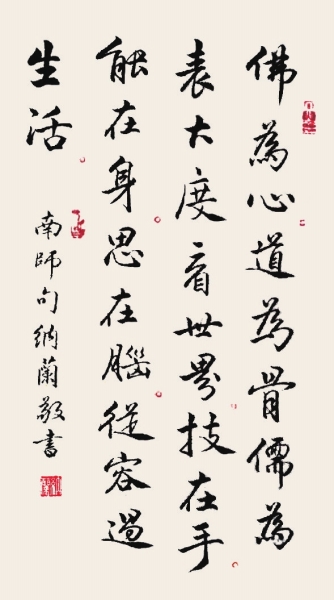 佛為心道為骨儒為
表大度看世界技在手
能在身思在腦從容過
生活
南師句納蘭敬書